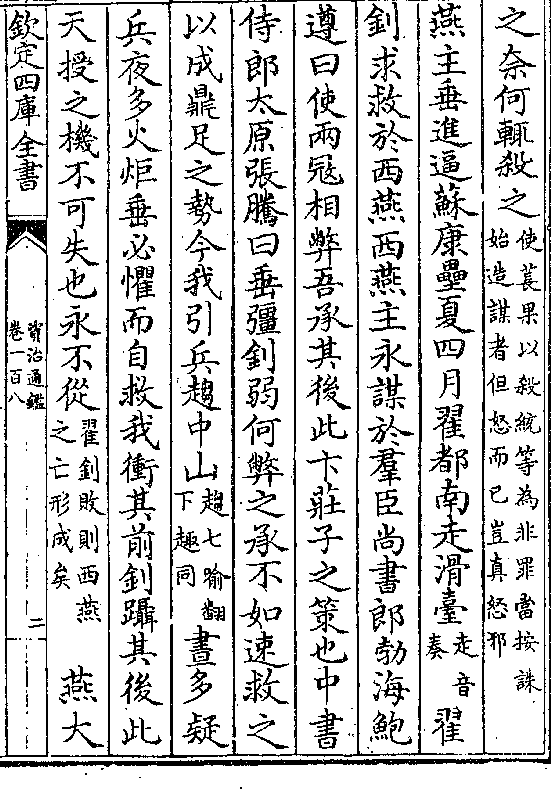 之奈何輒殺之使萇果以殺統等為非罪當按誅
始造謀者但怒而已豈真怒邪
燕主垂進逼蘇康壘夏四月翟都南走滑臺走音
奏翟
釗求救於西燕西燕主永謀於羣臣尚書郎勃海鮑
遵曰使兩寇相弊吾承其後此卞莊子之策也中書
侍郎太原張騰曰垂彊釗弱何弊之承不如速救之
以成鼎足之勢今我引兵趨中山趨七喻翻
下趣同晝多疑
兵夜多火炬垂必懼而自救我衝其前釗躡其後此
天授之機不可失也永不從翟釗敗則西燕
之亡形成矣燕大
欽定四庫全書
資治通鑑
卷一百八
二